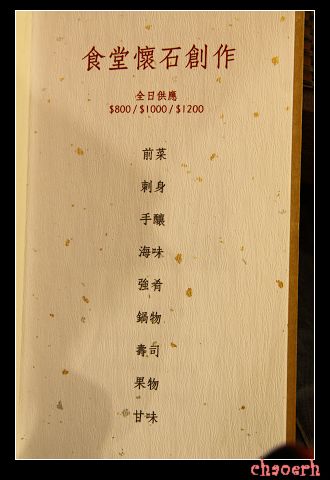 食堂懷石創作
全日供應
$800/$1000/$1200
前菜
刺身
手釀
海味
強肴
鍋物
壽司
果物
甘味
chaoerh